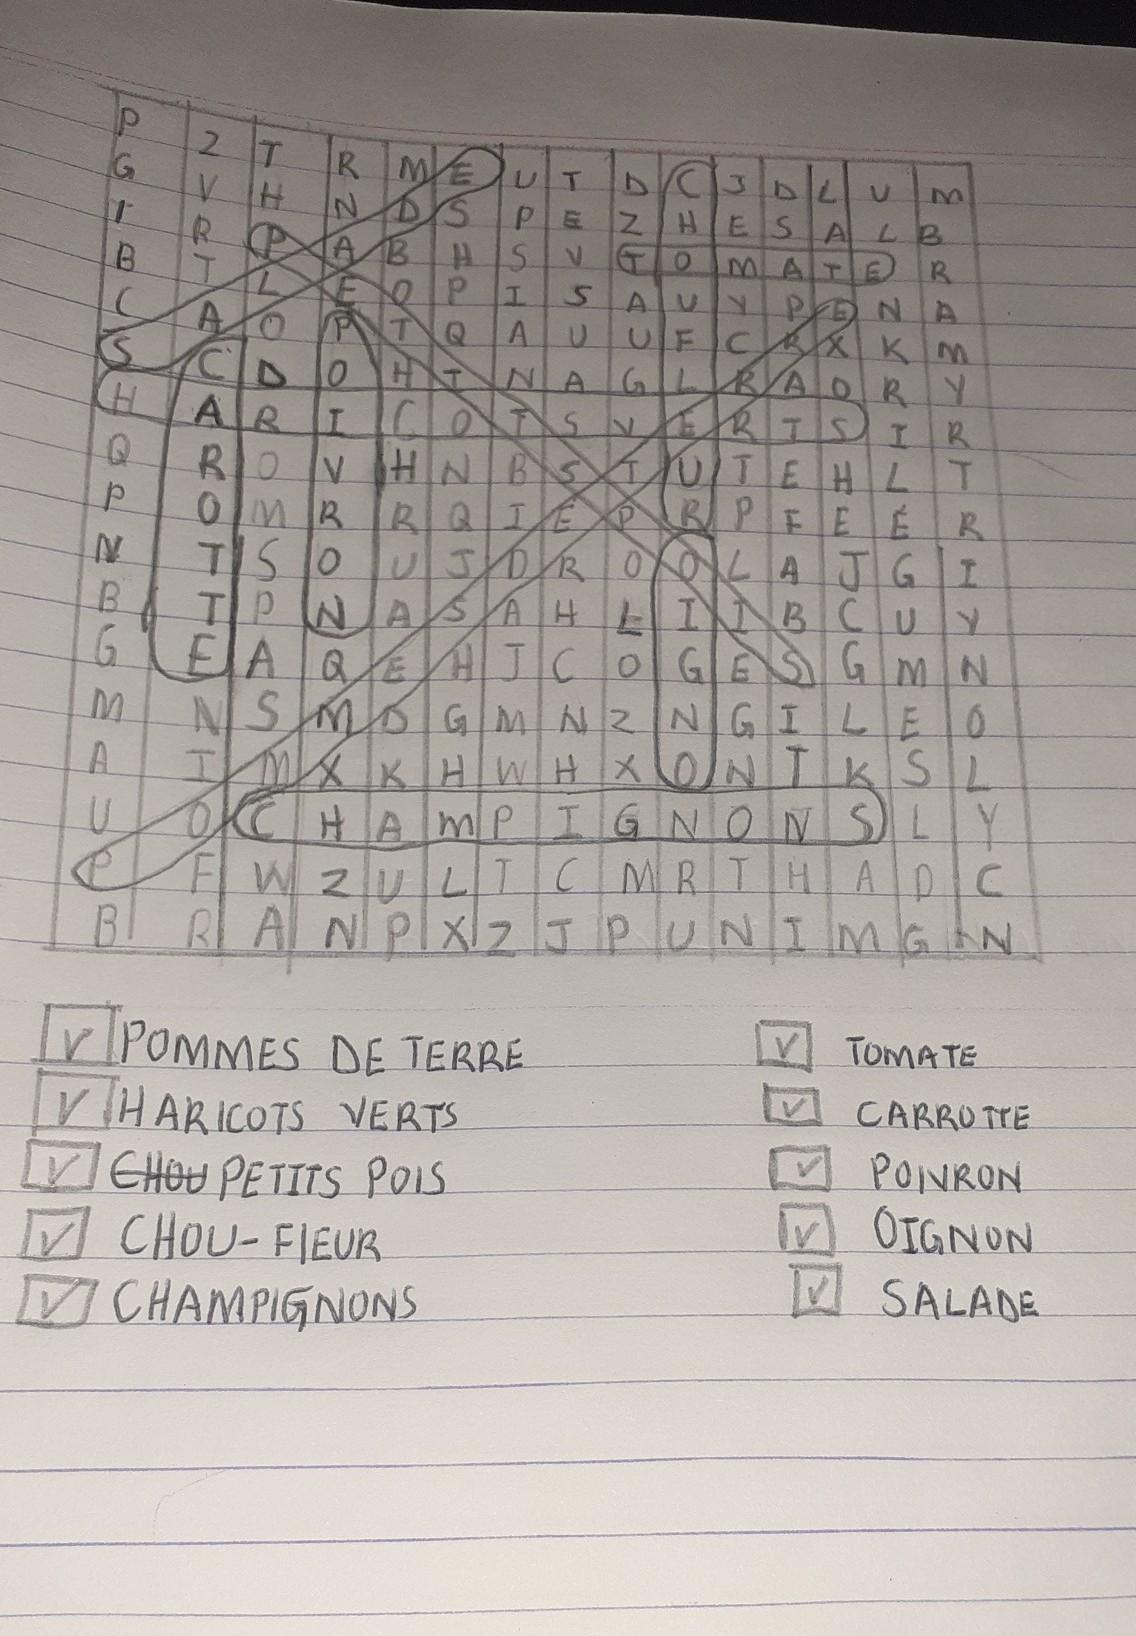 P Z T R M E U T D C J D L U M
G V H N D S P E Z H E S A L B
T R P A B H S V T O M A T E R
B T L E O P I S A U Y P E N A
C A O P T Q A U U F C R X K M
S C D O H T N A G L R A O R Y
H A R I C O T S V E R T S I R
Q R O V H N B S T U T E H L T
P O M R R Q I E P R P F E É R
N T S O U J D R O O L A J G I
B T P N A S A H L I I B C U Y
G E A Q E H J C O G E S G M N
M N S M D G M N Z N G I L E O
A I M X K H W H X O N T K S L
U O C H A M P I G N O N S L Y
P F W Z U L T C M R T H A D C
B R A N P X Z J P U N I M G N
V POMMES DE TERRE
V HARICOTS VERTS
V CHOU PETITS POIS
V CHOU-FlEUR
V CHAMPIGNONS
V TOMATE
V CARROTTE
V POIVRON
V OIGNON
V SALADE